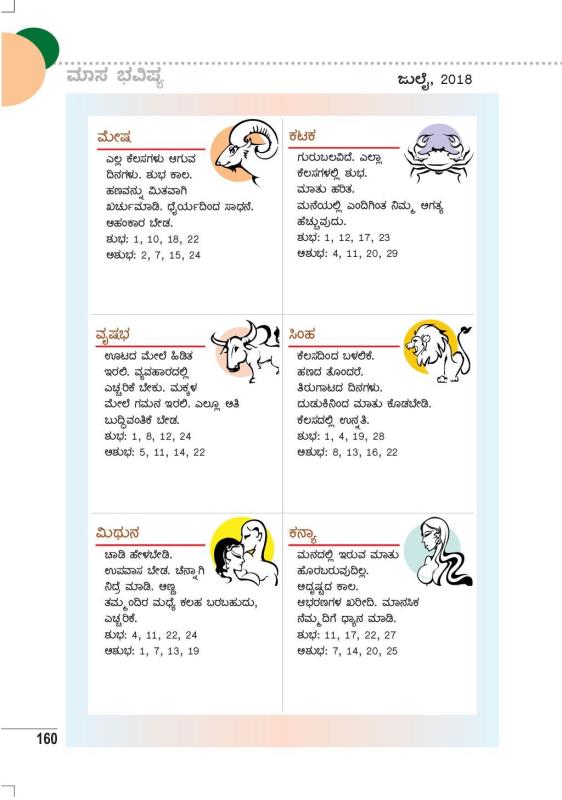 ಮಾಸ ಭವಿಷ್ಯ
ಜುಲೈ, 2018
ಮೇಷ
ಎಲ್ಲ ಕೆಲಸಗಳು ಆಗುವ
ದಿನಗಳು. ಶುಭ ಕಾಲ.
ಹಣವನ್ನು ಮಿತವಾಗಿ
ಖರ್ಚುಮಾಡಿ. ಧೈರ್ಯದಿಂದ ಸಾಧನೆ.
ಅಹಂಕಾರ ಬೇಡ.
ಶುಭ: 1, 10, 18, 22
ಅಶುಭ: 2, 7, 15, 24
ಕಟಕ
ಗುರುಬಲವಿದೆ. ಎಲ್ಲಾ
ಕೆಲಸಗಳಲ್ಲಿ ಶುಭ.
ಮಾತು ಹರಿತ.
ಮನೆಯಲ್ಲಿ ಎಂದಿಗಿಂತ ನಿಮ್ಮ ಅಗತ್ಯ
ಹೆಚ್ಚುವುದು.
ಶುಭ: 1, 12, 17, 23
ಅಶುಭ: 4, 11, 20, 29
ವೃಷಭ
ಊಟದ ಮೇಲೆ ಹಿಡಿತ
ಇರಲಿ. ವ್ಯವಹಾರದಲ್ಲಿ
ಎಚ್ಚರಿಕೆ ಬೇಕು. ಮಕ್ಕಳ
ಮೇಲೆ ಗಮನ ಇರಲಿ. ಎಲ್ಲೂ ಅತಿ
ಬುದ್ಧಿವಂತಿಕೆ ಬೇಡ.
ಶುಭ: 1, 8, 12, 24
ಅಶುಭ: 5, 11, 14, 22
ಸಿಂಹ
ಕೆಲಸದಿಂದ ಬಳಲಿಕೆ.
ಹಣದ ತೊಂದರೆ.
ತಿರುಗಾಟದ ದಿನಗಳು.
ದುಡುಕಿನಿಂದ ಮಾತು ಕೊಡಬೇಡಿ.
ಕೆಲಸದಲ್ಲಿ ಉನ್ನತಿ.
ಶುಭ: 1, 4, 19, 28
ಅಶುಭ: 8, 13, 16, 22
ಮಿಥುನ
ಚಾಡಿ ಹೇಳಬೇಡಿ.
ಉಪವಾಸ ಬೇಡ. ಚೆನ್ನಾಗಿ
ನಿದ್ರೆ ಮಾಡಿ. ಅಣ್ಣ
ತಮ್ಮಂದಿರ ಮಧ್ಯೆ ಕಲಹ ಬರಬಹುದು,
ಎಚ್ಚರಿಕೆ.
ಶುಭ: 4, 11, 22, 24
ಅಶುಭ: 1, 7, 13, 19
ಕನ್ಯಾ
ಮನದಲ್ಲಿ ಇರುವ ಮಾತು
ಹೊರಬರುವುದಿಲ್ಲ.
ಅದೃಷ್ಟದ ಕಾಲ.
ಆಭರಣಗಳ ಖರೀದಿ. ಮಾನಸಿಕ
ನೆಮ್ಮದಿಗೆ ಧ್ಯಾನ ಮಾಡಿ.
ಶುಭ: 11, 17, 22, 27
ಅಶುಭ: 7, 14, 20, 25
160